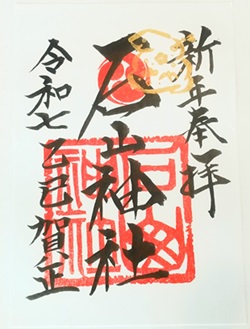 新年奉拝
石山神社
令和七乙巳賀正